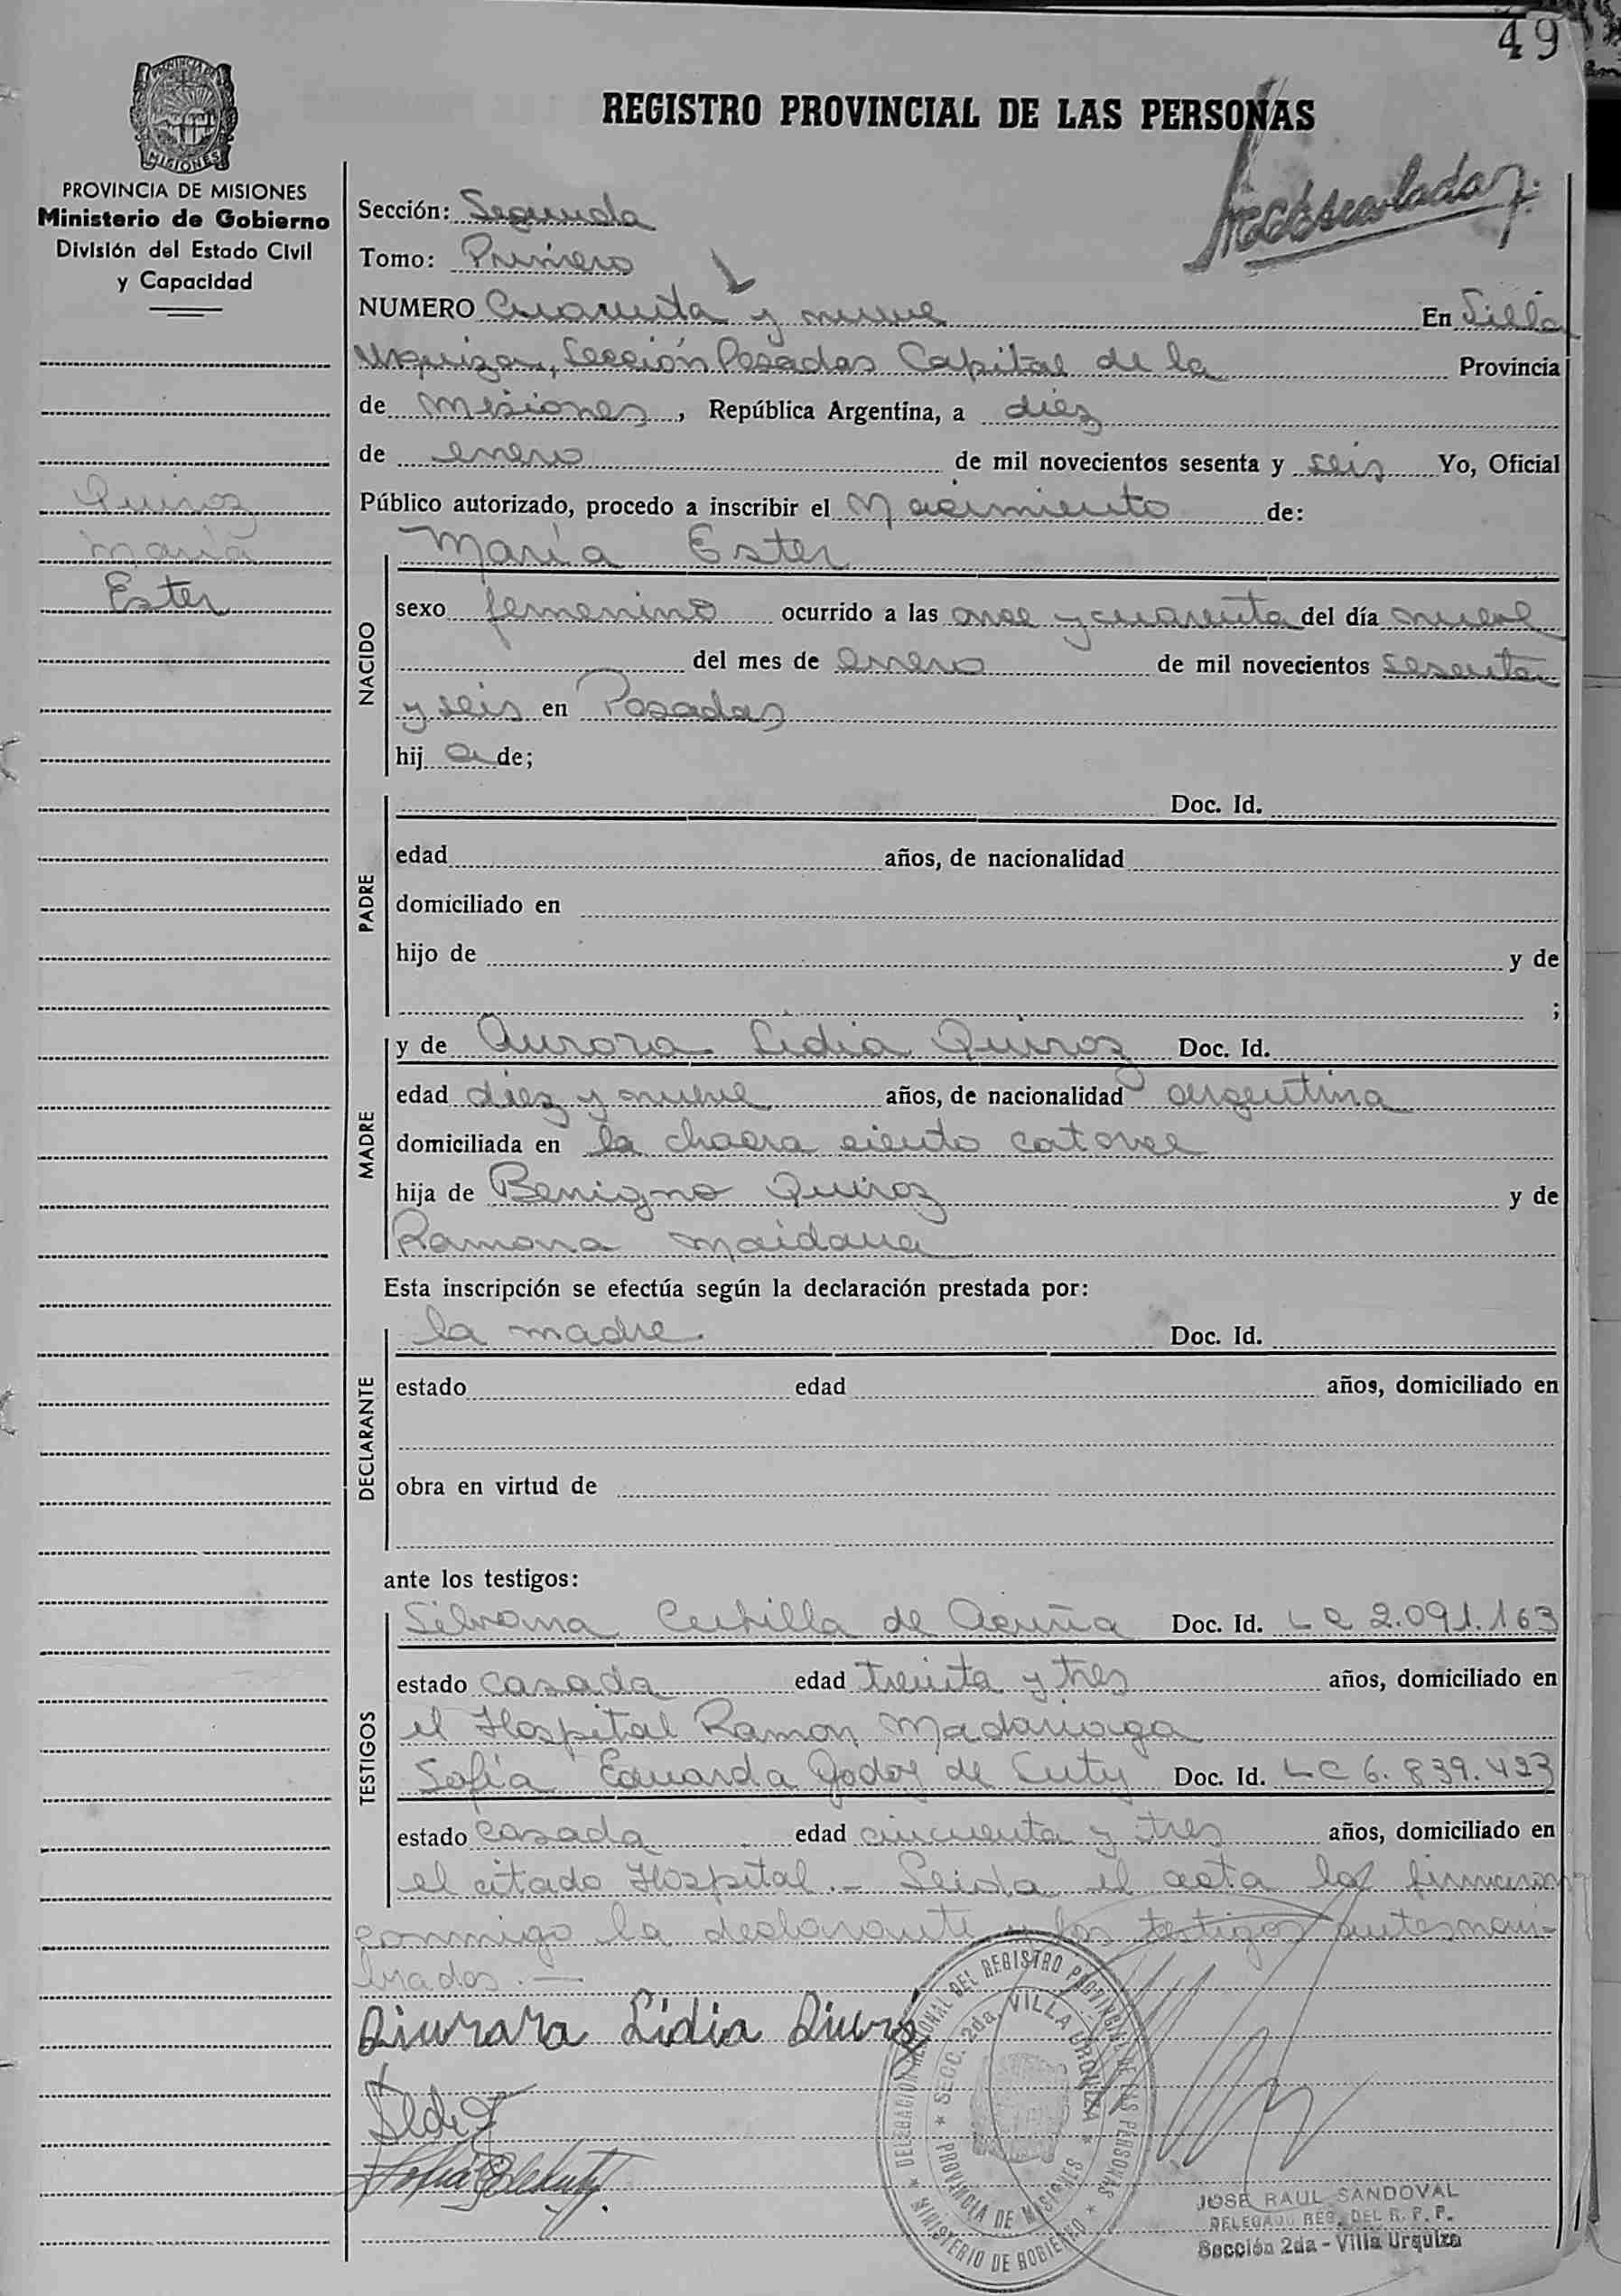 49
REGISTRO PROVINCIAL DE LAS PERSONAS
PROVINCIA DE MISIONES
Ministerio de Gobierno
División del Estado Civil
y Capacidad
Quiroz
María
Ester
Sección: Segunda
Tomo: Primero
NUMERO Cuarenta y nueve En Villa
Urquiza, Sección Posadas Capital de la Provincia
de Misiones, República Argentina, a diez
de enero de mil novecientos sesenta y seis Yo, Oficial
Público autorizado, procedo a inscribir el Nacimiento de:
NACIDO
María Ester
sexo femenino ocurrido a las once y cuarenta del día nueve
del mes de enero de mil novecientos sesenta
y seis en Posadas
hij a de;
PADRE
Doc. Id.
edad años, de nacionalidad
domiciliado en
hijo de y de
;
MADRE
y de Aurora Lidia Quiroz Doc. Id.
edad diez y nueve años, de nacionalidad argentina
domiciliada en la chacra ciento catorce
hija de Benigno Quiroz y de
Ramona Maidana
Esta inscripción se efectúa según la declaración prestada por:
DECLARANTE
la madre Doc. Id.
estado edad años, domiciliado en
obra en virtud de
ante los testigos:
TESTIGOS
Silvana de Acuña Doc. Id. LC 2.091.163
estado casada edad treinta y tres años, domiciliado en
el Hospital Ramon Madariaga
Sofía Eduarda Godoy de Cuty Doc. Id. LC 6.839.423
estado casada edad cincuenta y tres años, domiciliado en
el citado Hospital.- Leida el acta la firmaron
conmigo la declarante y los testigos antesnom-
brados.—
Lidia
DELEGACION REGIONAL DEL REGISTRO PROVINCIAL DE LAS PERSONAS
SECC. 2da. VILLA URQUIZA
PROVINCIA DE MISIONES
MINISTERIO DE GOBIERNO
JOSE RAUL SANDOVAL
DELEGADO REG. DEL R. P. P.
Sección 2da - Villa Urquiza